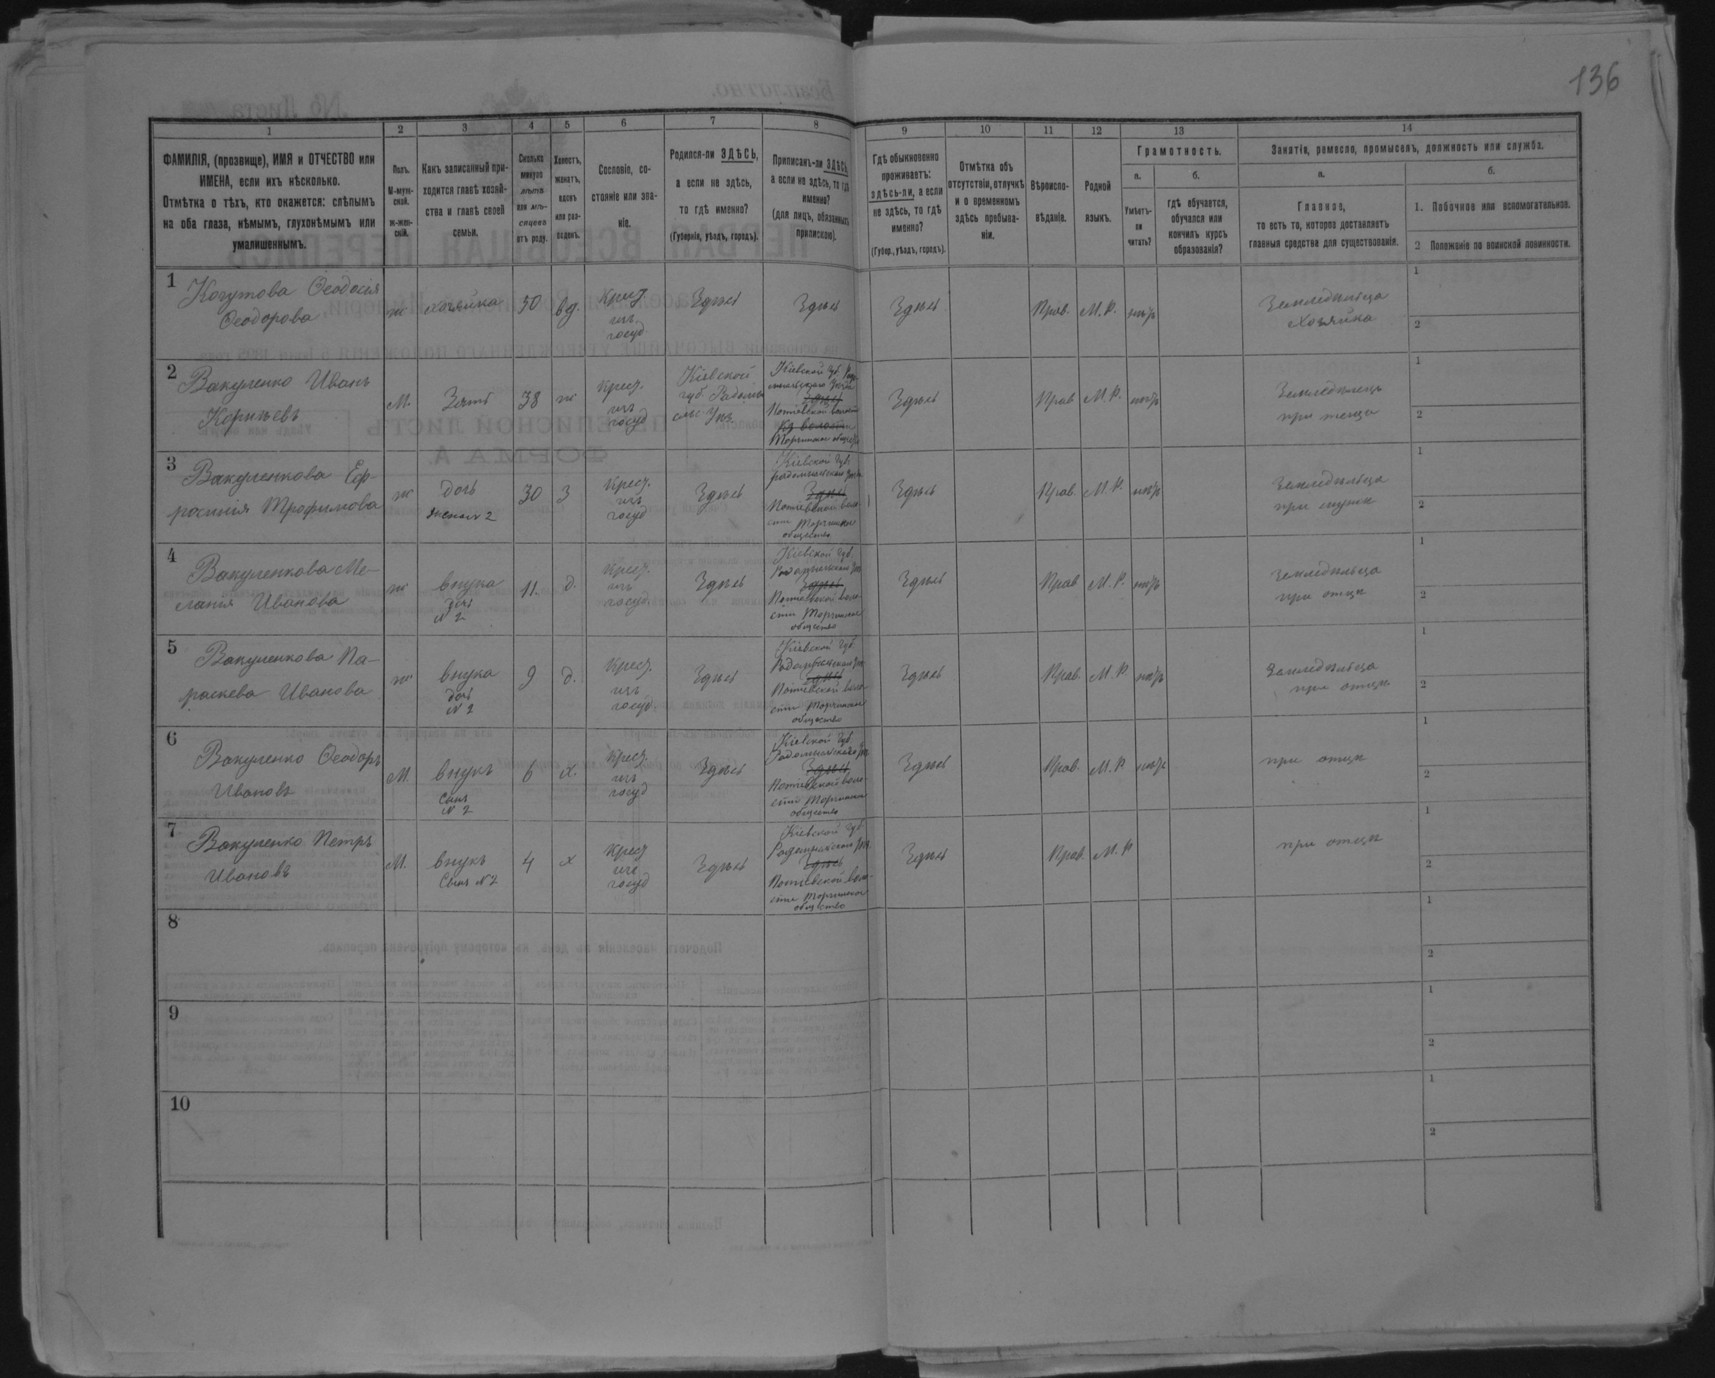 136
1 2 3 4 5 6 7 8 9 10 11 12 13 14
ФАМИЛІЯ, (прозвище), ИМЯ и ОТЧЕСТВО или
ИМЕНА, если ихъ нѣсколько.
Отмѣтка о тѣхъ, кто окажется: слѣпымъ
на оба глаза, нѣмымъ, глухонѣмымъ или
умалишеннымъ.
Полъ.
М-муж-
ской.
ж-жен-
скій.
Какъ записанный при-
ходится главѣ хозяй-
ства и главѣ своей
семьи.
Сколько
минуло
лѣтъ
или мѣ-
сяцевъ
отъ роду.
Холостъ,
женатъ,
вдовъ
или раз-
веденъ.
Сословіе, со-
стояніе или зва-
ніе.
Родился-ли ЗДѢСЬ,
а если не здѣсь,
то гдѣ именно?
(Губернія, уѣздъ, городъ).
Приписанъ-ли ЗДѢСЬ,
а если не здѣсь, то гдѣ
именно?
(для лицъ, обязанныхъ
припискою).
Гдѣ обыкновенно
проживаетъ:
здѣсь-ли, а если
не здѣсь, то гдѣ
именно?
(Губер., уѣздъ, городъ).
Отмѣтка объ
отсутствіи, отлучкѣ
и о временномъ
здѣсь пребыва-
ніи.
Вѣроиспо-
вѣданіе.
Родной
языкъ.
Грамотность.
а.
Умѣетъ-
ли
читать?
б.
гдѣ обучается,
обучался или
кончилъ курсъ
образованія?
Занятія, ремесло, промыселъ, должность или служба.
а.
Главное,
то есть то, которое доставляетъ
главныя средства для существованія.
б.
1. Побочное или вспомогательное.
2 Положеніе по воинской повинности.
1
Когутова Ѳеодосія
Ѳеодорова
ж
хозяйка
50
вд.
Крест.
изъ
госуд.
Здѣсь
Здѣсь
Здѣсь
Прав.
М. Р.
нѣтъ
Земледѣльца
Хозяйка
1
2
2
Вакуленко Иванъ
Корнѣевъ
М.
Зять
38
ж
Крест.
изъ
госуд
Кіевской
губ Радомы-
слс. Уѣз.
Кіевской Губ.
Здѣсь
Потіевской волости
Здѣсь
Прав
М. Р.
нѣтъ
Земледѣлецъ
при теща
1
2
3
Вакуленкова Еф-
росинія Трофимова
ж
дочь
жена N 2
30
З
Крест.
изъ
госуд
Здѣсь
Кіевской Губ.
Здѣсь
Потіевской воло-
сти
общество
Здѣсь
Прав.
М. Р.
нѣтъ
Земледѣльца
при мужѣ
1
2
4
Вакуленкова Ме-
ланія Иванова
ж
внука
дочь
N 2
11.
д.
Крест.
изъ
госуд
Здѣсь
Кіевской Губ.
Здѣсь
Потіевской воло-
сти
общество
Здѣсь
Прав
М. Р.
нѣтъ
Земледѣльца
при отцѣ
1
2
5
Вакуленкова Па-
раскева Иванова
ж
внука
дочь
N 2
9
д.
Крест.
изъ
госуд.
Здѣсь
Кіевской Губ.
Здѣсь
Потіевской воло-
сти
общество
Здѣсь
Прав.
М. Р
нѣтъ
Земледѣльца
при отцѣ
1
2
6
Вакуленко Ѳеодоръ
Ивановъ
М.
внукъ
Сынъ
N 2
6
х.
Крест.
изъ
госуд
Здѣсь
Кіевской Губ.
Здѣсь
Потіевской воло-
сти
общество
Здѣсь
Прав.
М. Р
нѣтъ
при отцѣ
1
2
7
Вакуленко Петръ
Ивановъ
М.
внукъ
Сынъ N 2
4
х
Крест
изъ
госуд
Здѣсь
Кіевской Губ
Здѣсь
Потіевской воло-
сти
общество
Здѣсь
Прав.
М. Р
при отцѣ
1
2
8
1
2
9
1
2
10
1
2